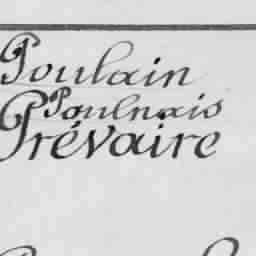 Poulain
Poulnais
Prévaire